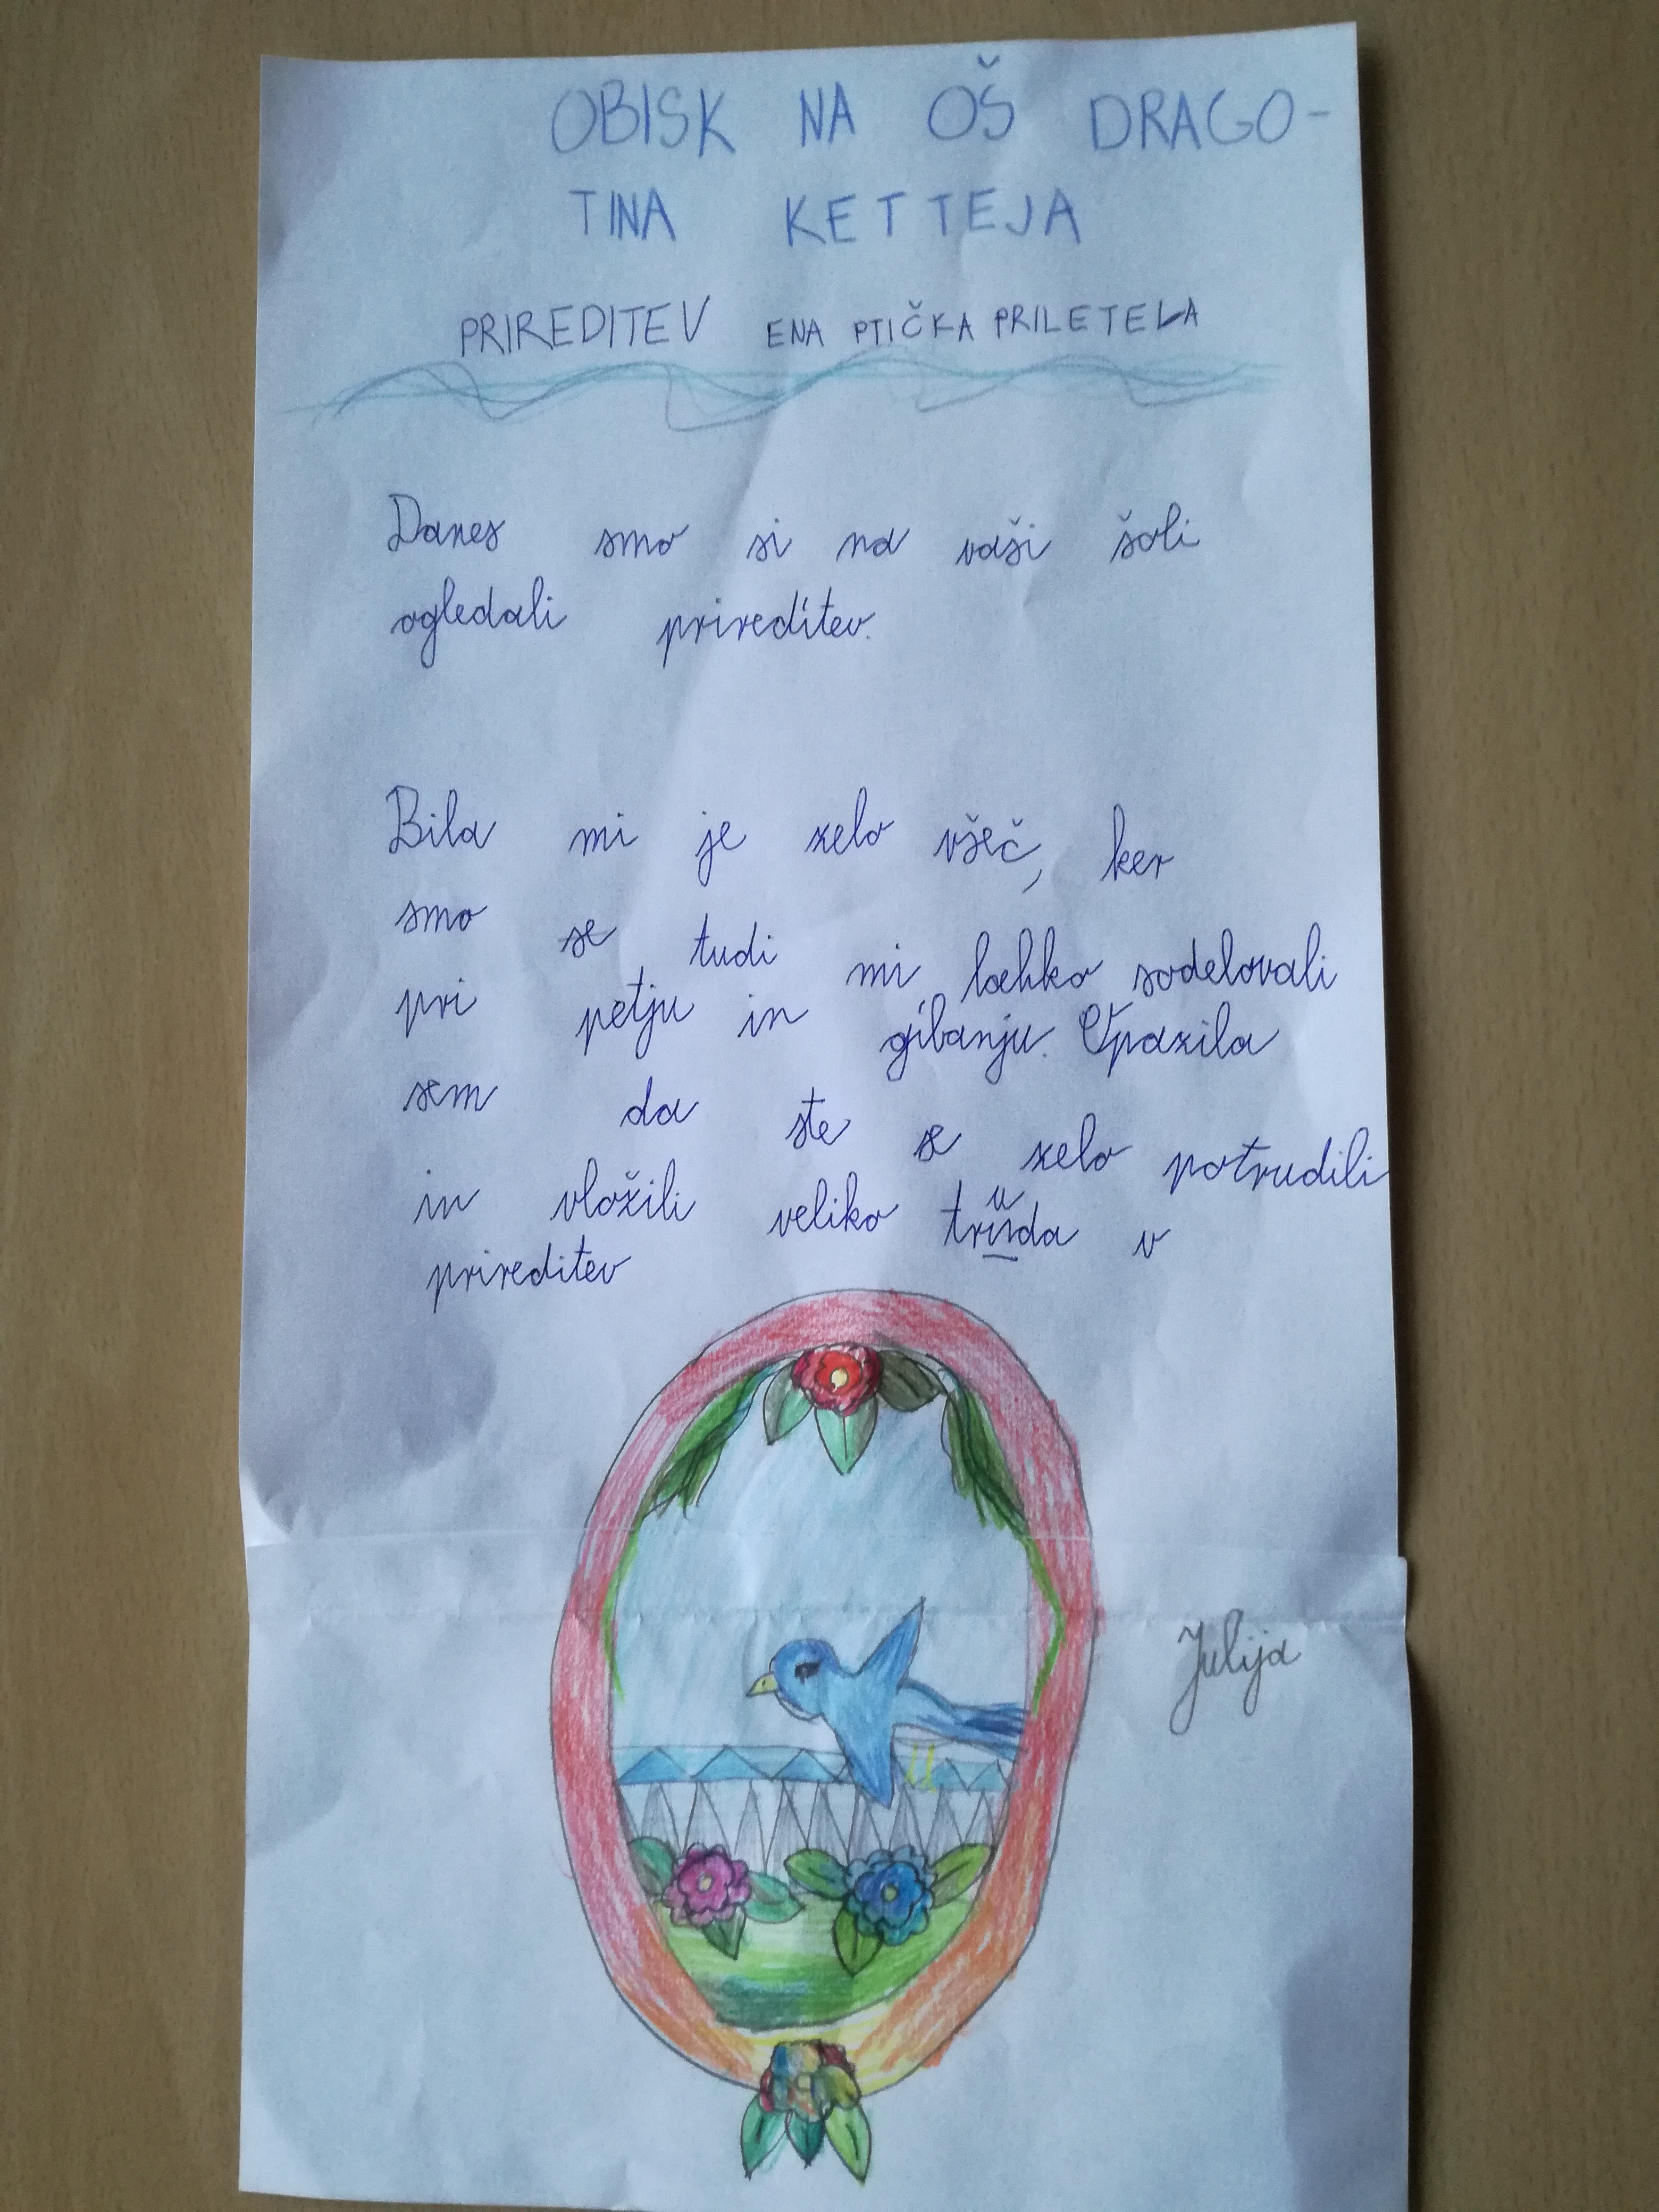 OBISK NA OŠ DRAGO-
TINA KETTEJA
PRIREDITEV ENA PTIČKA PRILETELA
Danes smo si na vaši šoli
ogledali prireditev.
Bila mi je zelo všeč, ker
smo se tudi mi lahko sodelovali
pri petju in gibanju. Opazila
sem da ste se zelo potrudili
in vložili veliko truda v
prireditev
Julija